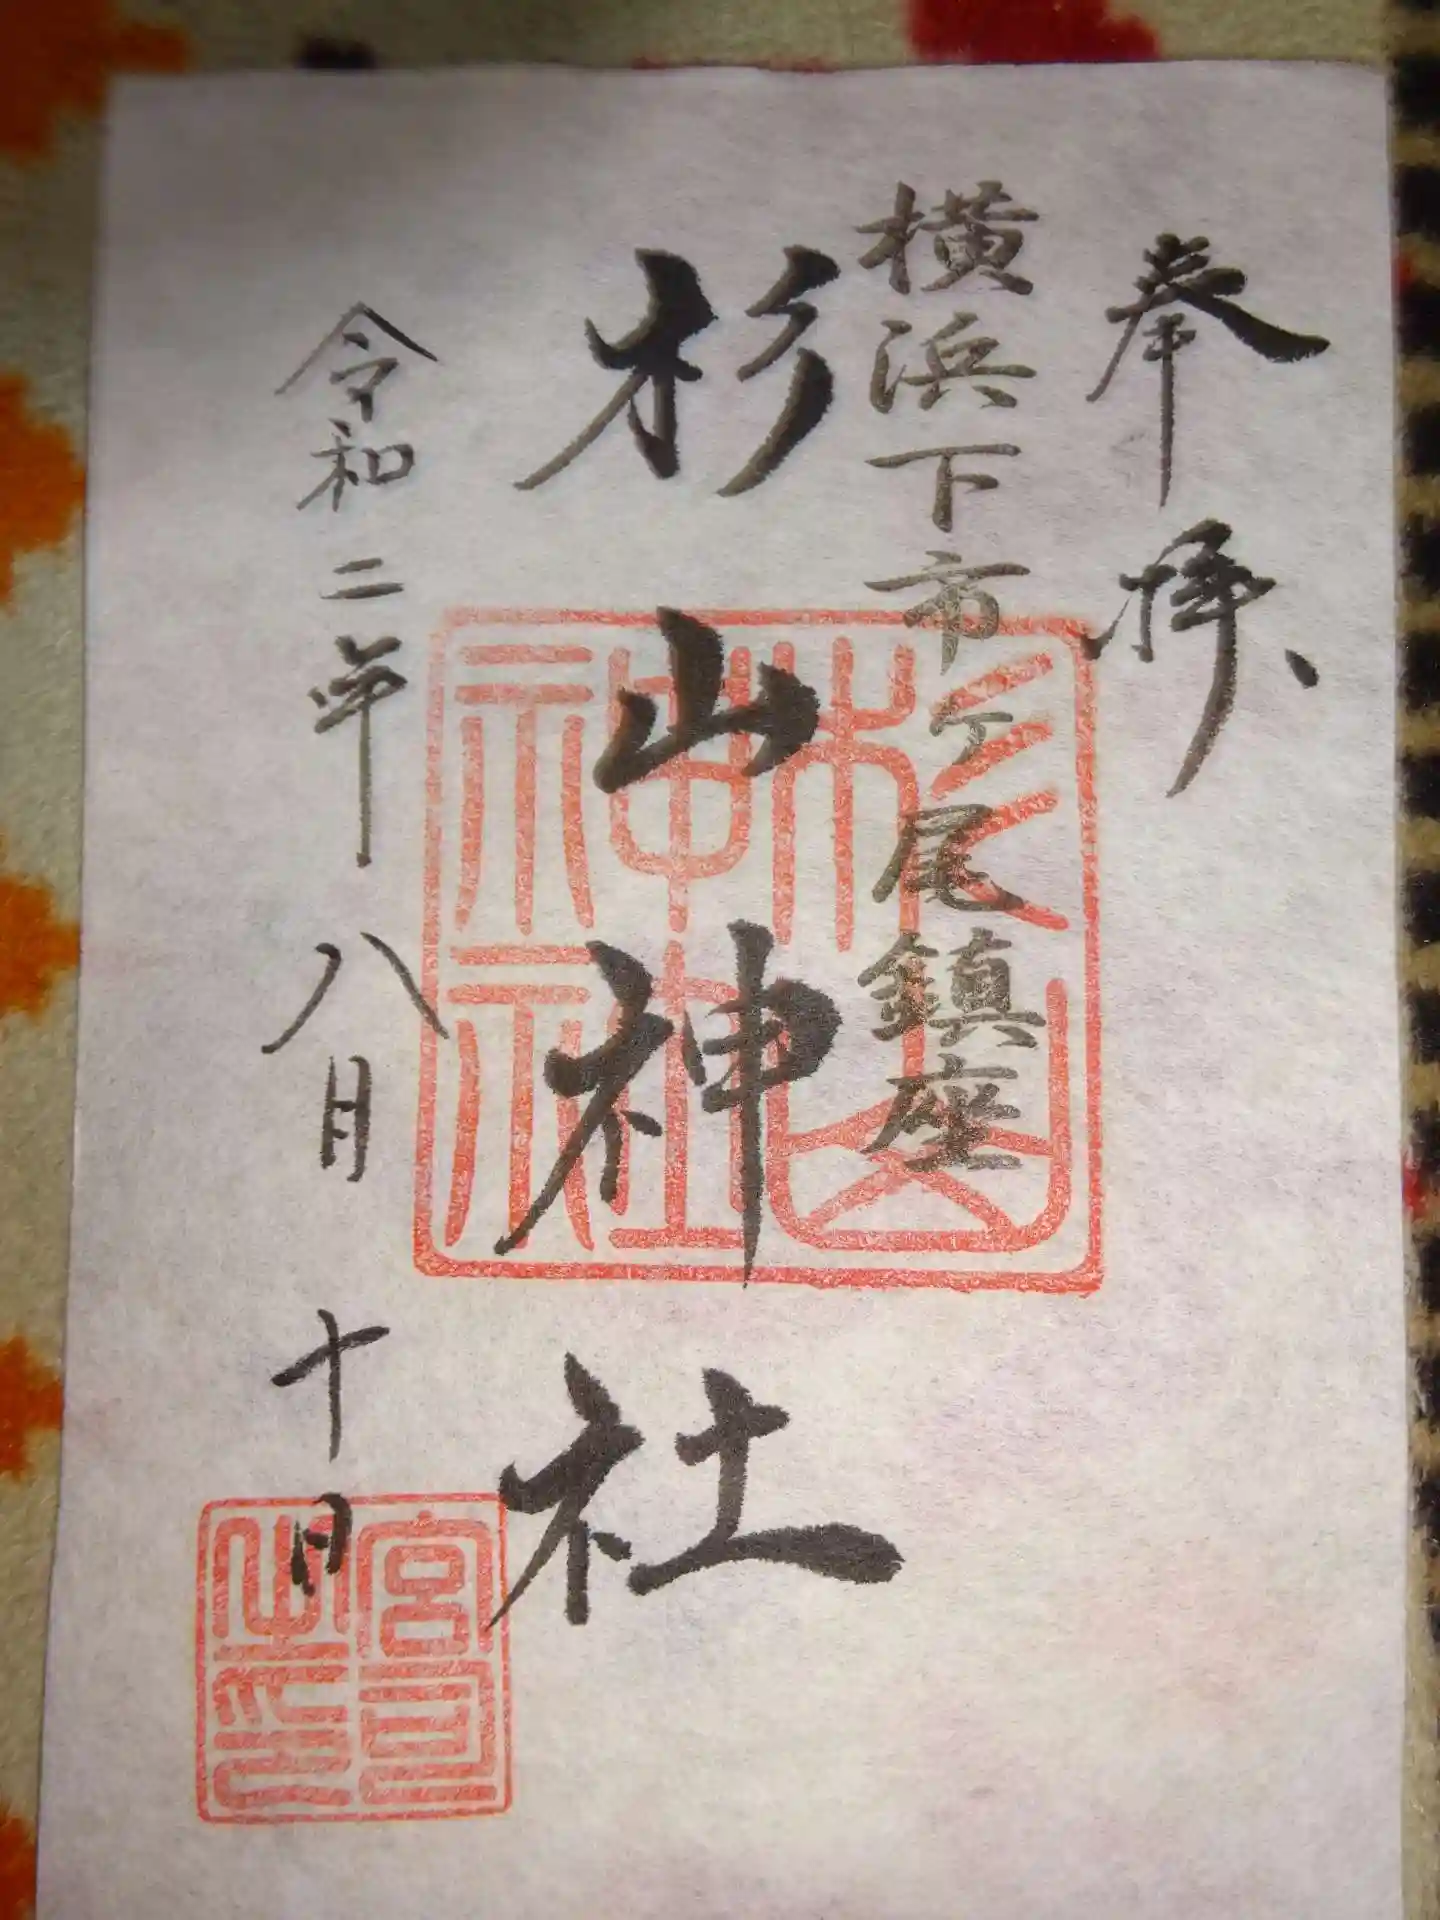 奉拝、
横浜下市ヶ尾鎮座
杉山神社
令和二年八月十日
杉山神社
宮司之印